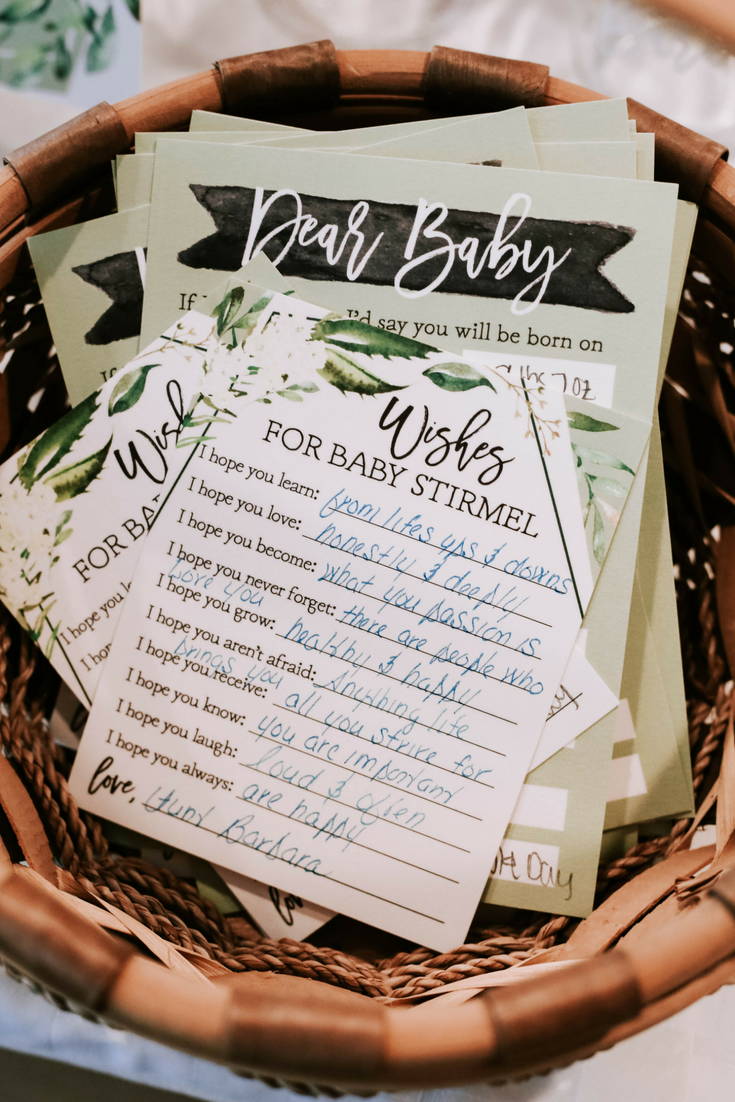 Dear Baby
If I'd say you will be born on
lbs 7 oz
Wishes
FOR BABY STIRMEL
I hope you learn: from lifes ups & downs
I hope you love: honestly & deeply
I hope you become: what you passion is
I hope you never forget: there are people who
love you
I hope you grow: healthy & happy
I hope you aren't afraid: Anything life
brings you
I hope you receive: all you strive for
I hope you know: you are important
I hope you laugh: loud & often
I hope you always: are happy
love, Aunt Barbara
Wish
FOR BA
I hope you le
I ho
Day
lo